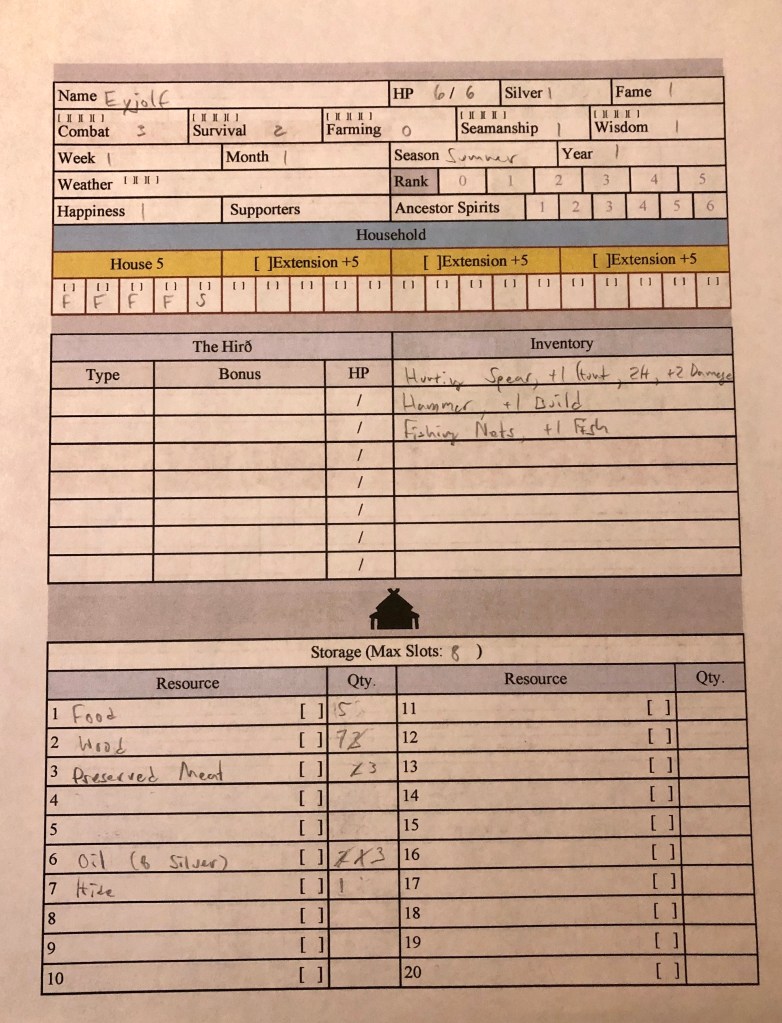 Name Eyjolf HP 6/6 Silver 1 Fame 1
[ ][ ][ ][ ] [ ][ ][ ][ ] [ ][ ][ ][ ] [ ][ ][ ][ ] [ ][ ][ ][ ]
Combat 3 Survival 2 Farming 0 Seamanship 1 Wisdom 1
Week 1 Month 1 Season Summer Year 1
Weather [ ][ ][ ] Rank 0 1 2 3 4 5
Happiness 1 Supporters Ancestor Spirits 1 2 3 4 5 6
Household
House 5 [ ]Extension +5 [ ]Extension +5 [ ]Extension +5
[ ] [ ] [ ] [ ] [ ] [ ] [ ] [ ] [ ] [ ] [ ] [ ] [ ] [ ] [ ] [ ] [ ] [ ] [ ] [ ]
F F F F S
The Hirð Inventory
Type Bonus HP Hunting Spear, +1 Hunt, 2H, +2 Damage
/ Hammer, +1 Build
/ Fishing Nets, +1 Fish
/
/
/
/
/
Storage (Max Slots: 8 )
Resource Qty. Resource Qty.
1 Food [ ] 15 11 [ ]
2 Wood [ ] 12 [ ]
3 Preserved Meat [ ] 3 13 [ ]
4 [ ] 14 [ ]
5 [ ] 15 [ ]
6 Oil (8 Silver) [ ] 3 16 [ ]
7 Hide [ ] 1 17 [ ]
8 [ ] 18 [ ]
9 [ ] 19 [ ]
10 [ ] 20 [ ]